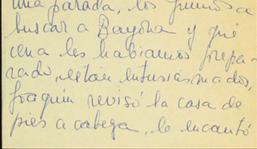 una parada, los fuimos a
buscar a Bayona y que
cena les habiamos prepa-
rado, están entusiasmados,
Joaquín revisó la casa de
pies a cabeza, le encantó